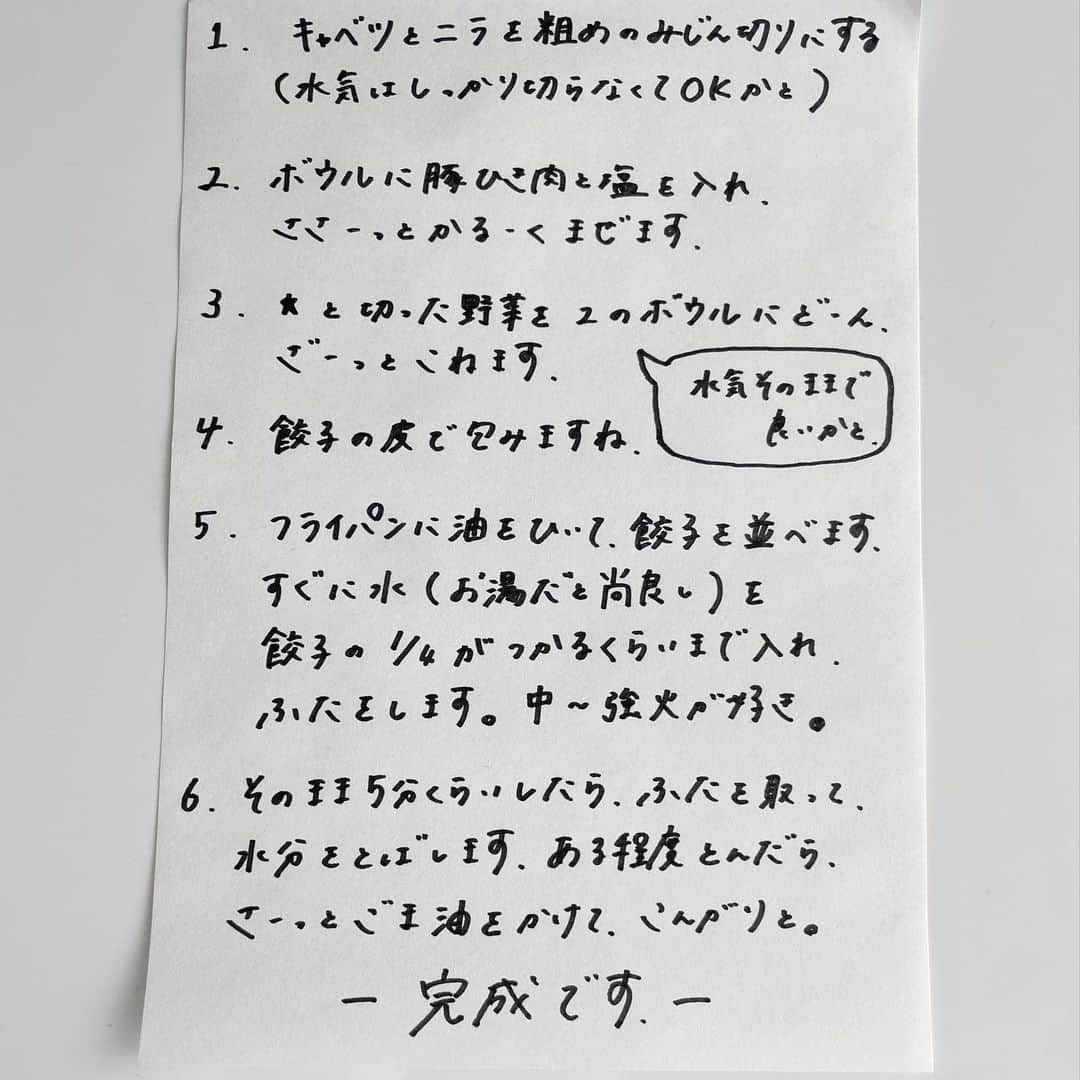 1. キャベツとニラを粗めのみじん切りにする
(水気はしっかり切らなくてOKかと)
2. ボウルに豚ひき肉と塩を入れ、
ささーっとかるーくまぜます。
3. ★と切った野菜を2のボウルにどーん、
ざーっとこねます。
水気そのままで
良いかと。
4. 餃子の皮で包みますね。
5. フライパンに油をひいて、餃子を並べます。
すぐに水(お湯だと尚良し)を
餃子の1/4がつかるくらいまで入れ、
ふたをします。中〜強火が好き。
6. そのまま5分くらいしたら、ふたを取って、
水分をとばします。ある程度とんだら、
さーっとごま油をかけて、こんがりと。
ー 完成です。ー